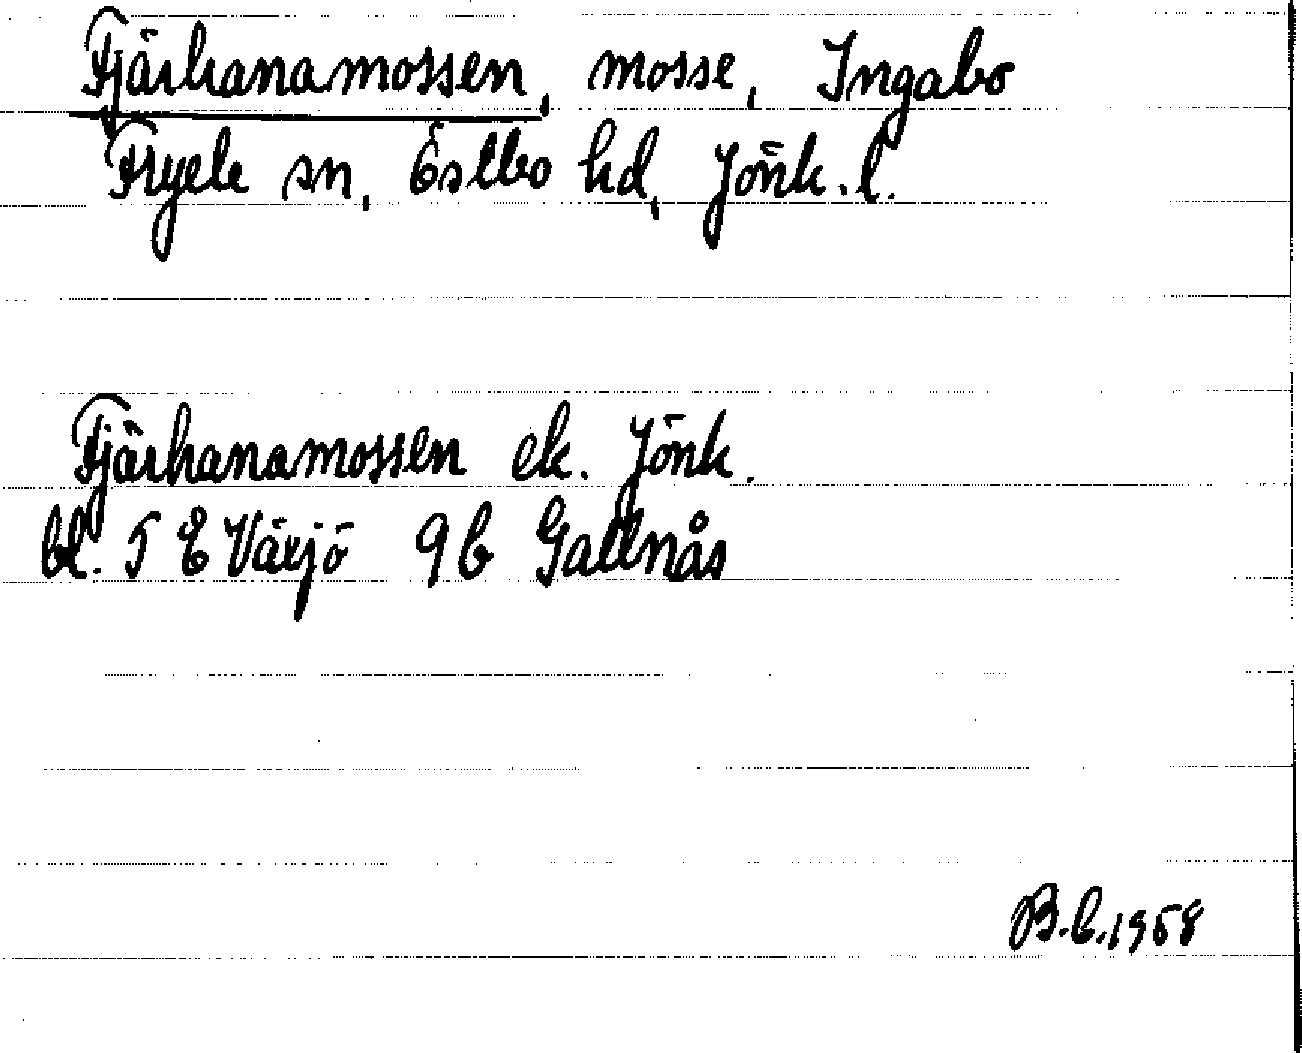 Fjärhanamossen, mosse, Ingabo
Fryele sn, Östbo hd, Jönk. l.
Fjärhanamossen ek. Jönk.
bl. 5 E Växjö 9 b Gällnås
B.E. 1958